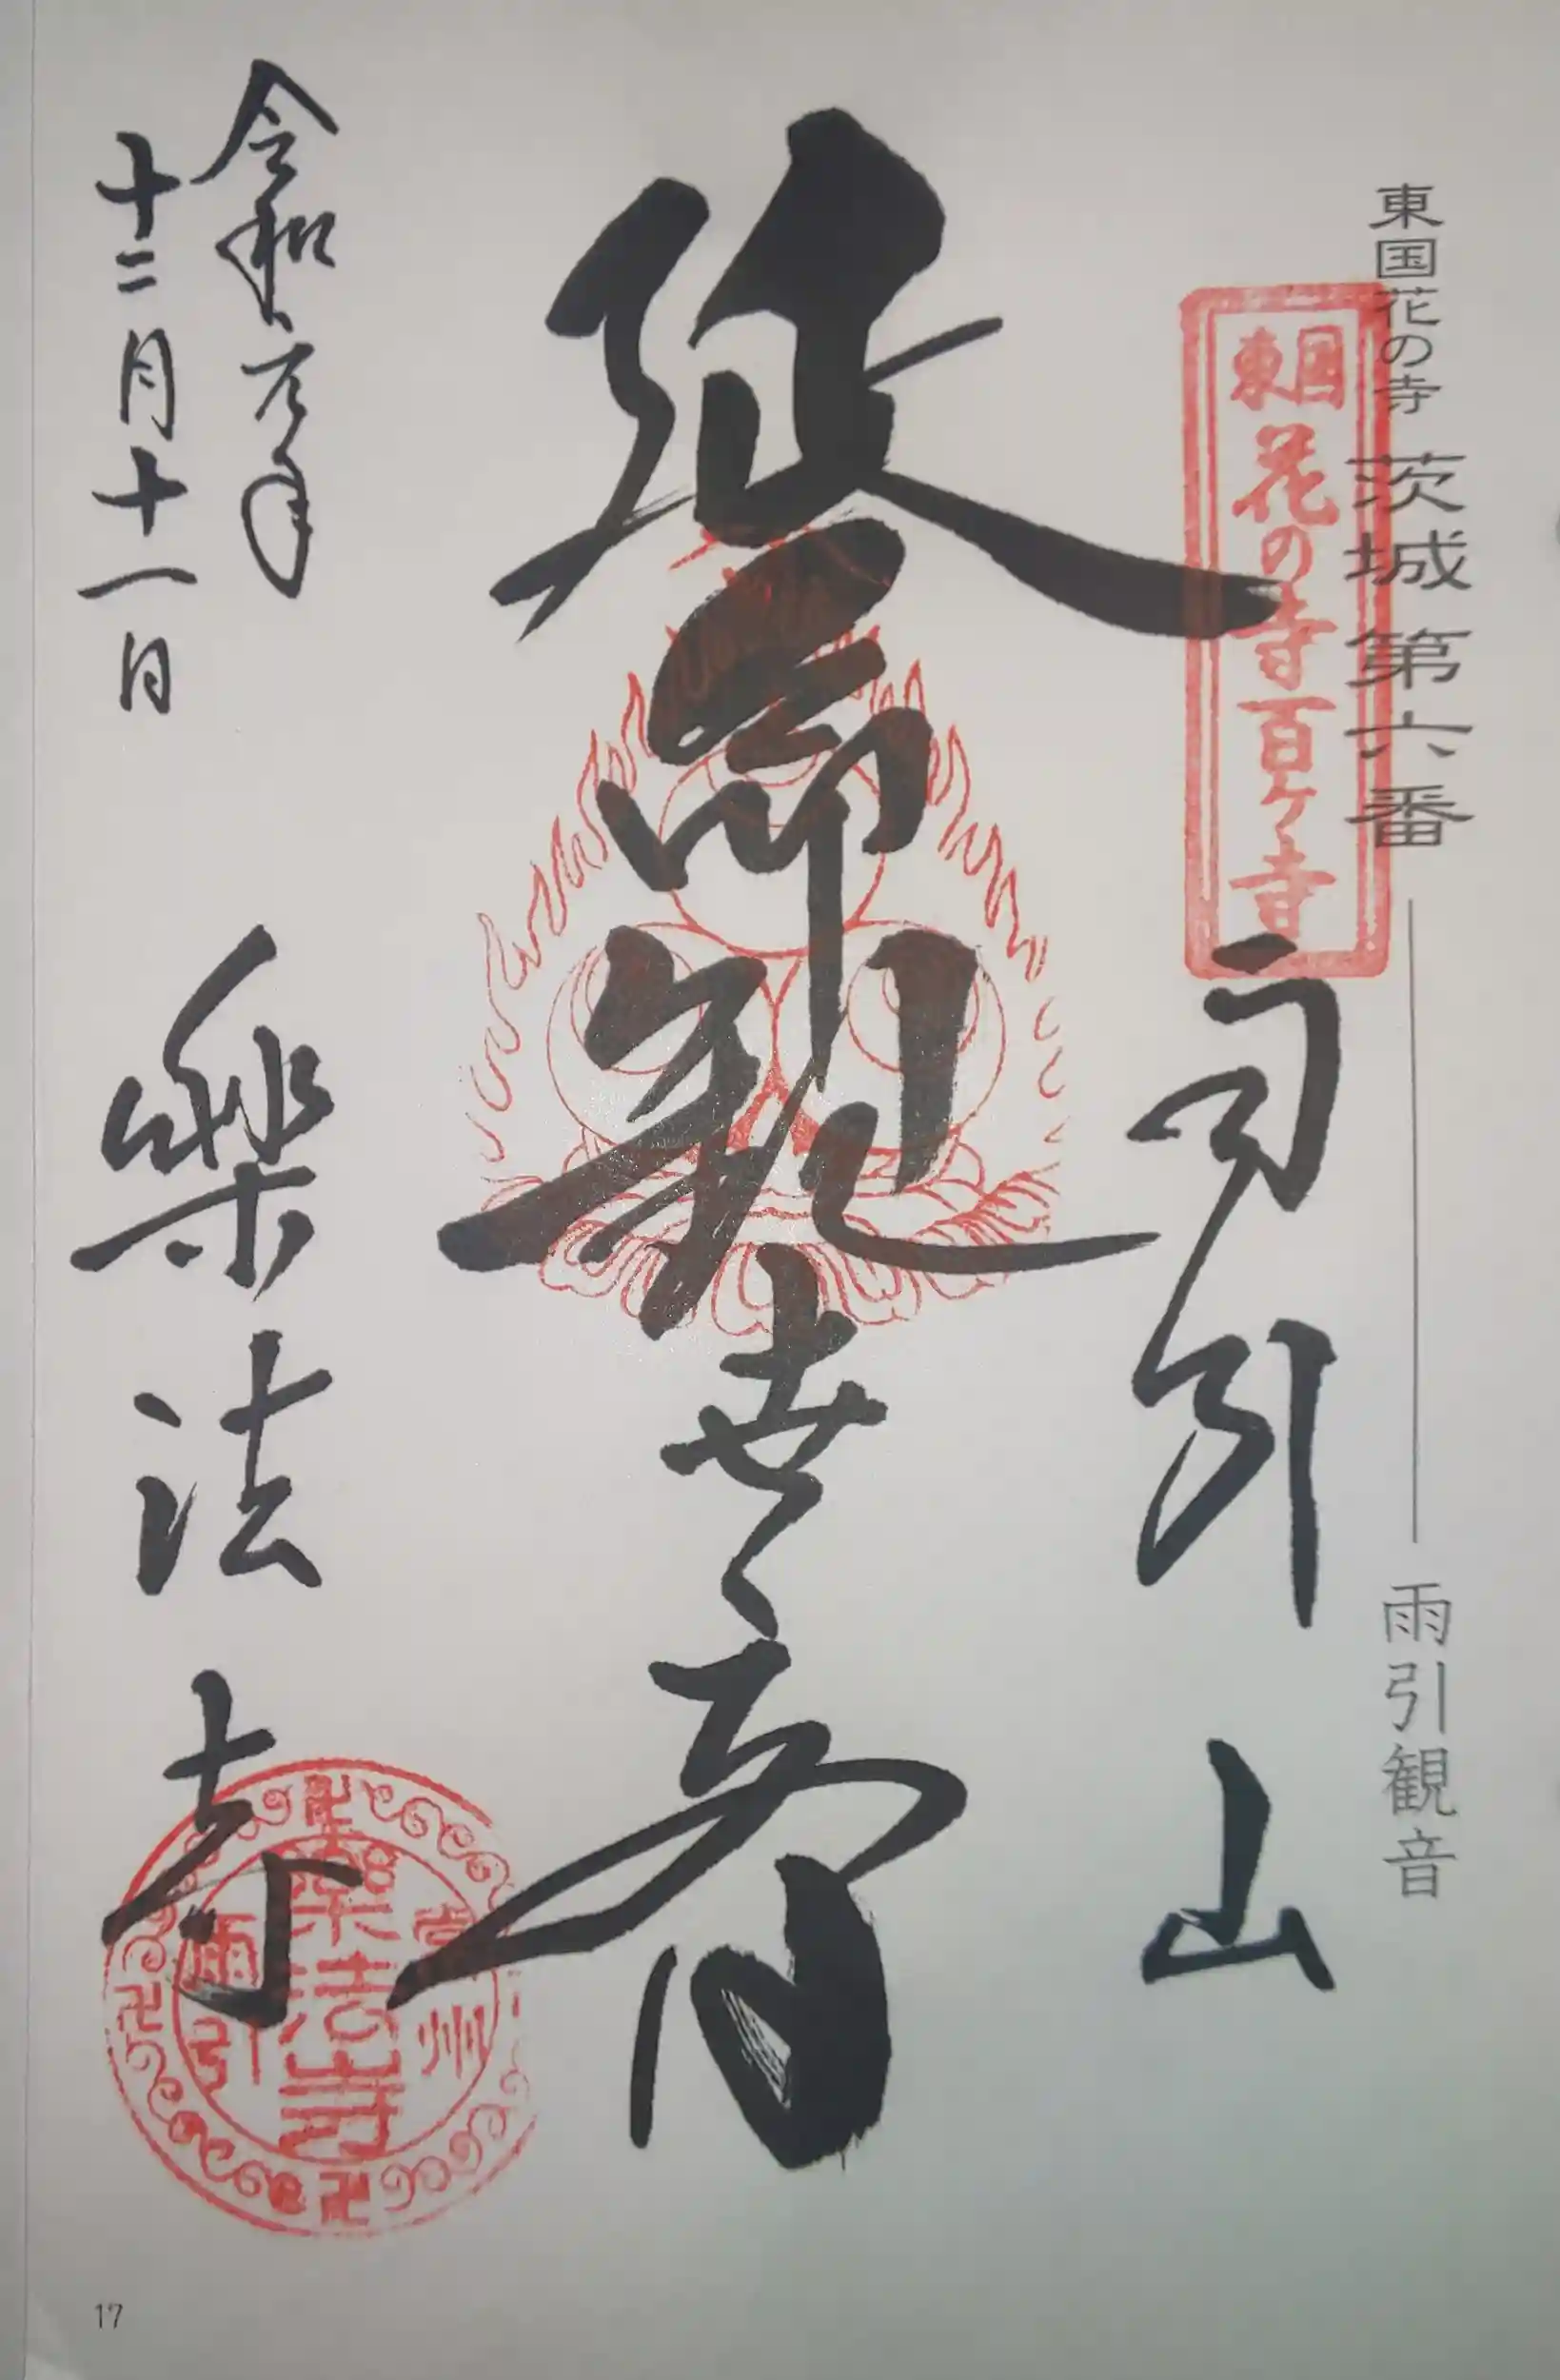 東国花の寺 茨城 第六番 雨引観音
東国
花の寺百ヶ寺
雨引山
延命観世音
令和元年
十二月十一日
楽法寺
楽法寺
雨引
17